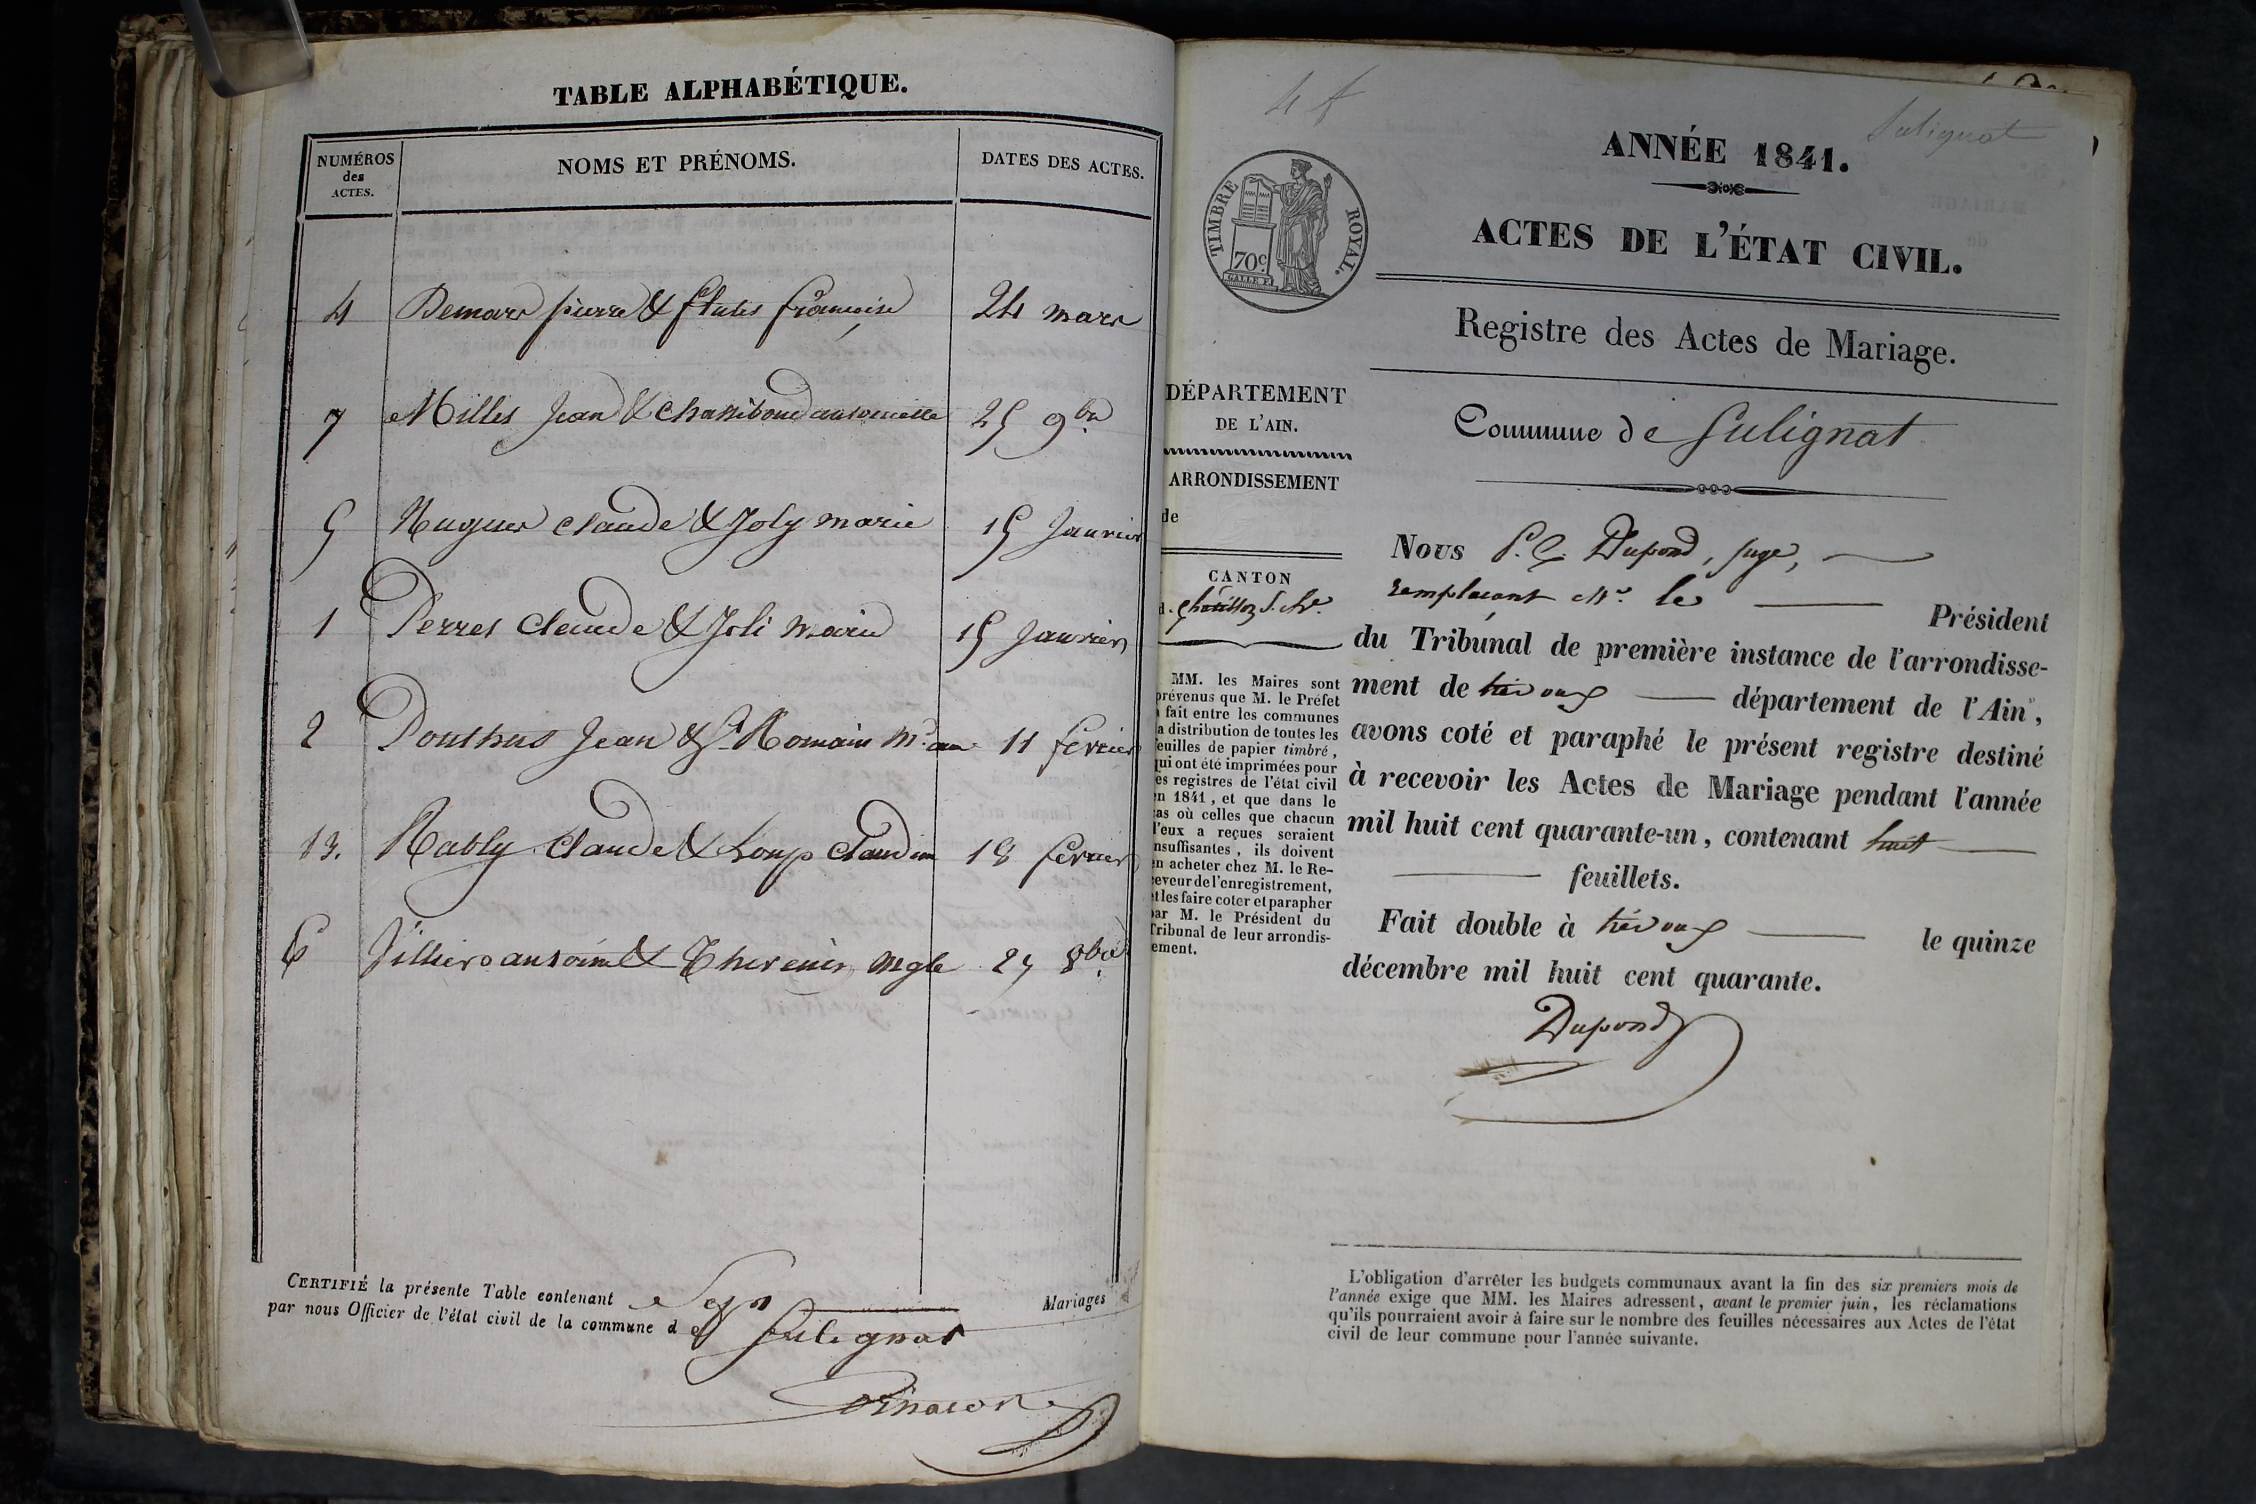 TABLE ALPHABÉTIQUE.
NUMÉROS
des
ACTES.
NOMS ET PRÉNOMS.
DATES DES ACTES.
4 Demars pierre & flutes françoise 24 mars
7 Milles Jean & Chassiboud antoinette 25 9bre
5 Hugues Claude & Joly marie 15 Janvier
1 Perret Claude & Joli Marie 15 Janvier
2 Ponthus Jean & St Romain 11 fevrier
13. Rably Claude & Loup Claudine 18 fevrier
6 Tillier antoine & Thevenin 27 8bre
CERTIFIÉ la présente Table contenant Sept Mariages
par nous Officier de l'état civil de la commune de Sulignat
4 f
Sulignat
ANNÉE 1841.
TIMBRE ROYAL.
70c
ACTES DE L'ÉTAT CIVIL.
Registre des Actes de Mariage.
Commune de Sulignat
DÉPARTEMENT
DE L'AIN.
ARRONDISSEMENT
de
CANTON
d. Chatillon S. Ch.e
MM. les Maires sont
prévenus que M. le Préfet
a fait entre les communes
la distribution de toutes les
feuilles de papier timbré,
qui ont été imprimées pour
les registres de l'état civil
en 1841, et que dans le
cas où celles que chacun
d'eux a reçues seraient
insuffisantes, ils doivent
en acheter chez M. le Re-
ceveur de l'enregistrement,
et les faire coter et parapher
par M. le Président du
Tribunal de leur arrondis-
sement.
Nous P. G. Dupond, juge,
remplaçant Mr. le Président
du Tribunal de première instance de l'arrondisse-
ment de trévoux département de l'Ain,
avons coté et paraphé le présent registre destiné
à recevoir les Actes de Mariage pendant l'année
mil huit cent quarante-un, contenant huit
feuillets.
Fait double à trévoux le quinze
décembre mil huit cent quarante.
Dupond
L'obligation d'arrêter les budgets communaux avant la fin des six premiers mois de
l'année exige que MM. les Maires adressent, avant le premier juin, les réclamations
qu'ils pourraient avoir à faire sur le nombre des feuilles nécessaires aux Actes de l'état
civil de leur commune pour l'année suivante.